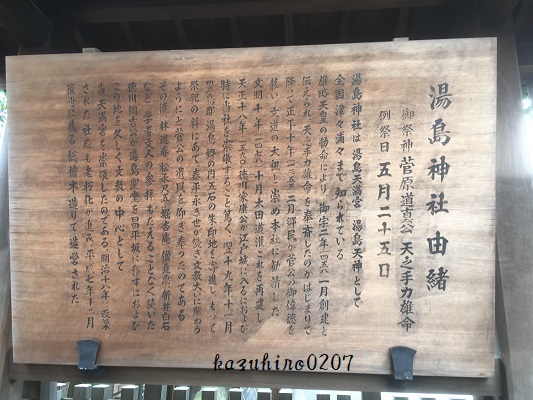 湯島神社由緒
御祭神 菅原道真公 天之手力雄命
例祭日 五月二十五日
湯島神社は 湯島天満宮 湯島天神として
全国津々満々まで知られている
雄略天皇の勅命により 御宇二年(四五八)一月創建と
伝えられ 天之手力雄命を奉斎したのがはじまりで
降って正平十年(一三五五)二月 郷民が菅公の御偉徳を
慕い 文道の大祖と崇め本社に勧請した
文明十年(一四七八)十月 太田道灌これを再建し
天正十八年(一五九〇)徳川家康公が江戸城に入るにおよび
特に当社を崇敬すること篤く 翌十九年十一月
豊島郡湯島郷の内五石の朱印地を寄進し もって
祭祀の料にあて 泰平永き世が続き 文教大いに賑わう
ようにと菅公の遺風を仰ぎ奉ったのである
その後 林道春 松永尺五 堀杏庵 僧堯恵 新井白石
など 学者文人の参拝もたえることなく続いた
徳川綱吉公が湯島聖堂を昌平坂に移すにおよび
この地を久しく文教の中心として
当天満宮を崇敬したのである 明治十八年 改築
された社殿も老朽化が進み 平成七年十二月
後世に残る総檜木造りで造営された
kazuhiro0207